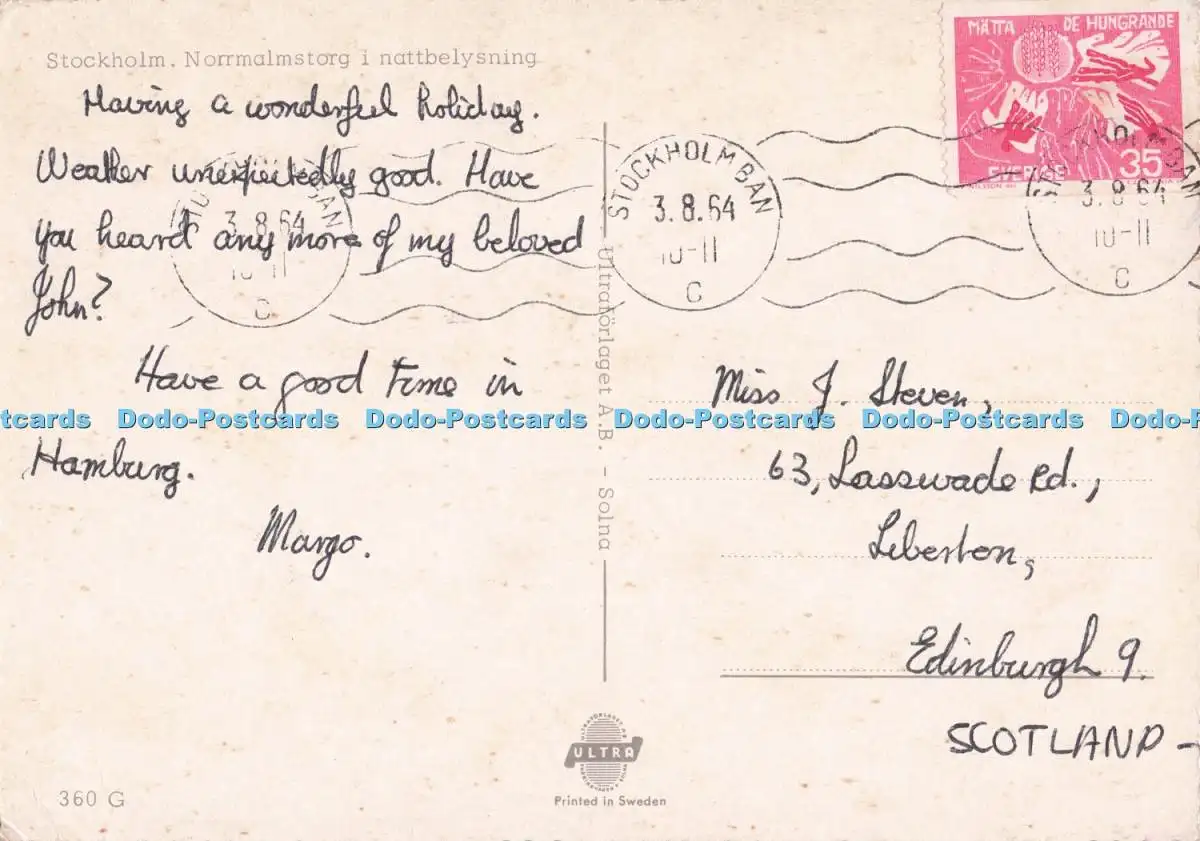 Stockholm. Norrmalmstorg i nattbelysning
Having a wonderful holiday.
Weather unexpectedly good. Have
you heard any more of my beloved
John?
Have a good time in
Hamburg.
Margo.
360 G
Ultraförlaget A.B. - Solna
ULTRA
Printed in Sweden
MÄTTA DE HUNGRANDE
SVERIGE 35
STOCKHOLM BAN
3.8.64
10-11
C
STOCKHOLM BAN
3.8.64
10-11
C
3.8.64
10-11
C
Miss J. Steven,
63, Lasswade Rd.,
Liberton,
Edinburgh 9.
SCOTLAND -
Dodo-Postcards Dodo-Postcards Dodo-Postcards Dodo-Postcards